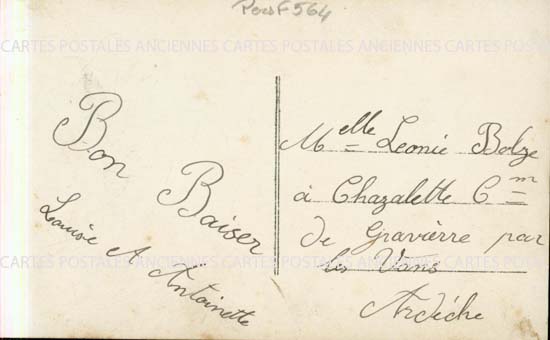 564
CARTES POSTALES ANCIENNES CARTES POSTALES ANCIENNES
Bon
Baiser
Louisie A Antoinette
Melle Leonie Bolze
à Chazalette Cm
de Gravièrre par
les Vans
Ardèche
CARTES POSTALES ANCIENNES CARTES POSTALES ANCIENNES